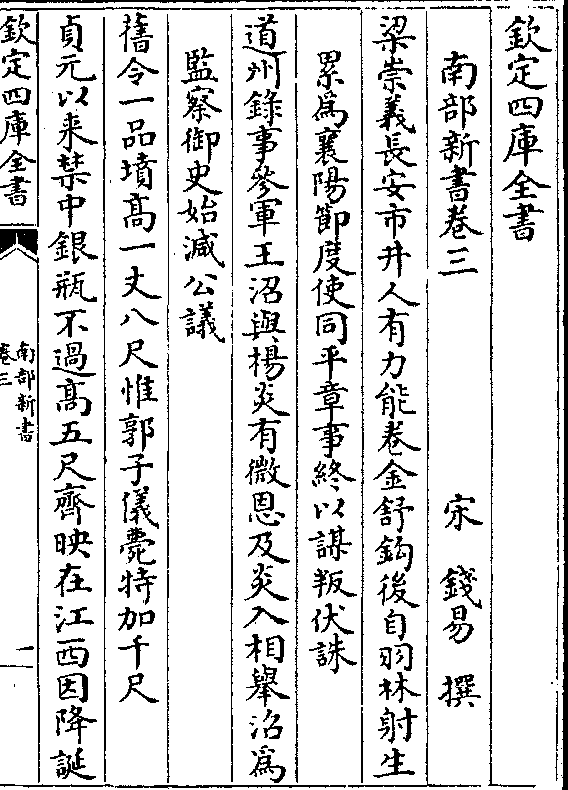 欽定四庫全書
南部新書卷三
宋 錢易 撰
梁崇義長安市井人有力能卷金舒鈎後自羽林射生
累為襄陽節度使同平章事終以謀叛伏誅
道州錄事參軍王沼與楊炎有微恩及炎入相舉沼為
監察御史始減公議
舊令一品墳髙一丈八尺惟郭子儀薨特加千尺
貞元以来禁中銀瓶不過髙五尺齊映在江西因降誕
欽定四庫全書
南部新書
卷三
一